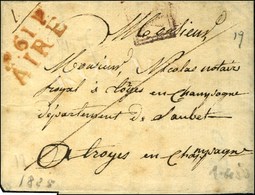 P. 61 P.
AIRE
19
Monsieur
Monsieur, Nicolas notaire
royal à troyes en Champagne
département de l'aube
A troyes en Champagne
1825